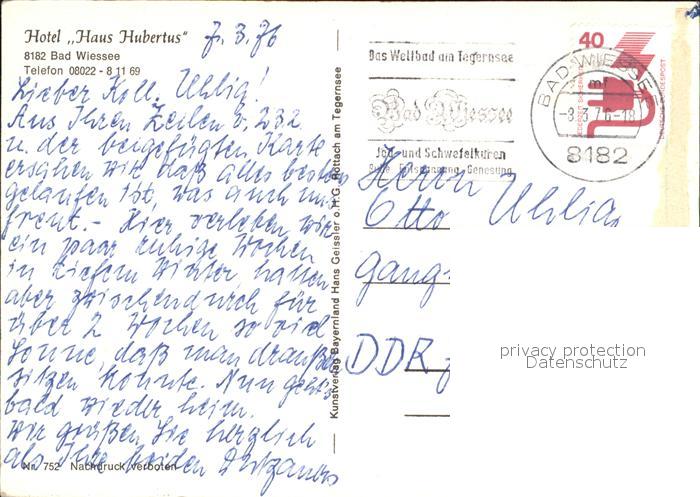 Hotel „Haus Hubertus" 7.3.76
8182 Bad Wiessee
Telefon 08022 - 8 11 69
Lieber Koll. Uhlig!
Aus Ihren Zeilen v. 23.2.
u. der beigefügten Karte
ersahen wir daß alles bestens
gelaufen ist, was auch uns
freut. - Hier verleben wir
ein paar ruhige Wochen
in tiefem Winter hatten
aber zwischendurch für
über 2 Wochen so viel
Sonne, daß man draußen
sitzen konnte. Nun geht's
bald wieder heim.
Wir grüßen Sie herzlich
als Ihre beiden
Nr. 752 Nachdruck verboten
Kunstverlag Bayernland Hans Geissler o.H.G. Rottach am Tegernsee
Das Weltbad am Tegernsee
Bad Wiessee
Jod- und Schwefelkuren
Entspannung - Genesung
BAD WIESSEE
mr
-8.3.76-18
8182
40
DEUTSCHE BUNDESPOST
Herrn
Otto Uhlig
DDR
privacy protection
Datenschutz